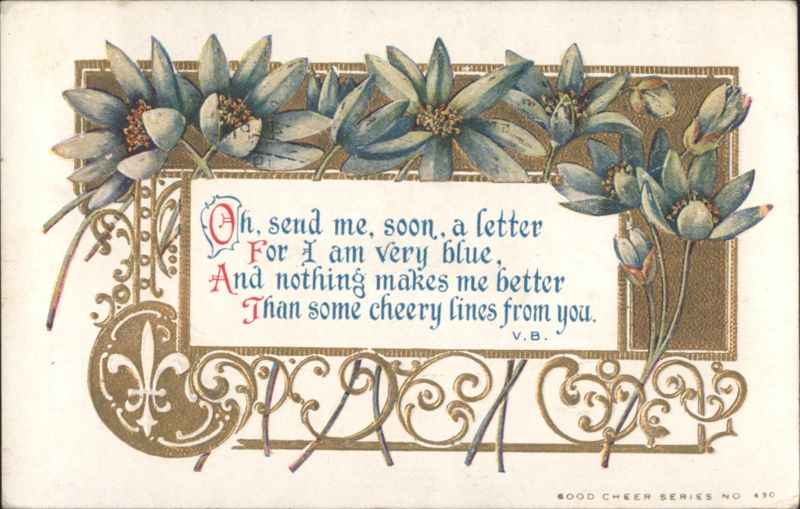 Oh, send me, soon, a letter
For I am very blue,
And nothing makes me better
Than some cheery lines from you.
V.B.
GOOD CHEER SERIES NO 490